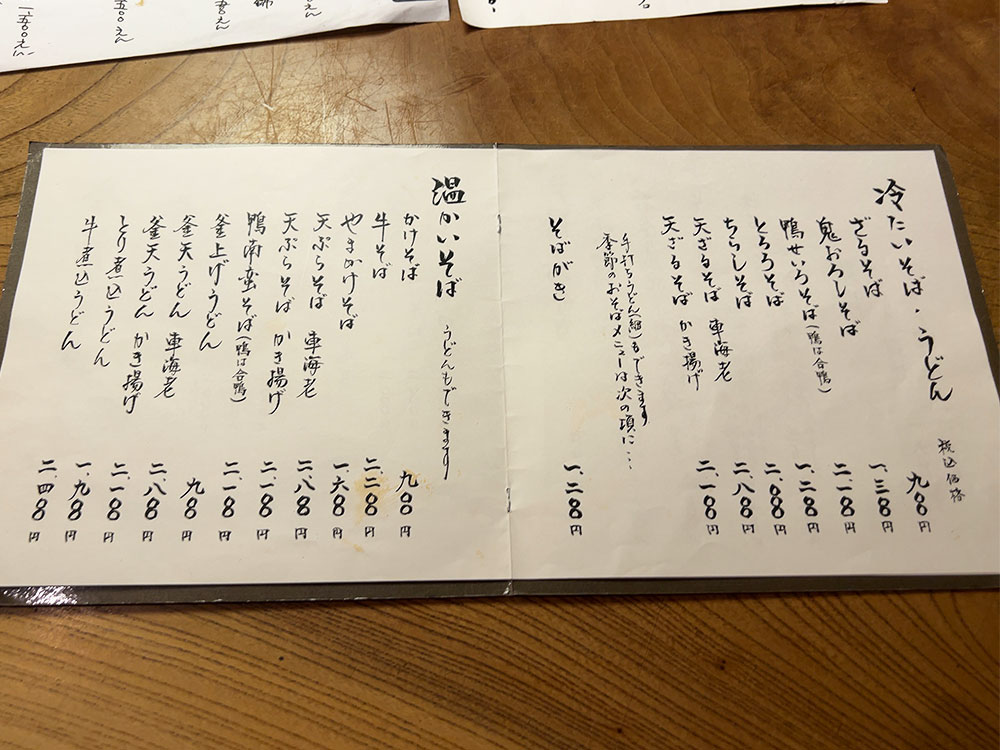 冷たいそば・うどん 税込価格
ざるそば 九〇〇円
鬼おろしそば 一、三〇〇円
鴨せいろそば(鴨は合鴨) 二、一〇〇円
とろろそば 一、二〇〇円
ちらしそば 二、〇〇〇円
天ざるそば 車海老 二、八〇〇円
天ざるそば かき揚げ 二、一〇〇円
手打ちうどん(細)もできます
季節のおそばメニューは次の頃に…
そばがき 一、二〇〇円
温かいそば うどんもできます
かけそば 九〇〇円
牛そば 二、二〇〇円
やまかけそば 一、六〇〇円
天ぷらそば 車海老 二、八〇〇円
天ぷらそば かき揚げ 二、一〇〇円
鴨南蛮そば(鴨は合鴨) 二、一〇〇円
釜上げうどん 九〇〇円
釜天うどん 車海老 二、八〇〇円
釜天うどん かき揚げ 二、一〇〇円
とり煮込うどん 一、九〇〇円
牛煮込うどん 二、四〇〇円
一、五〇〇えん